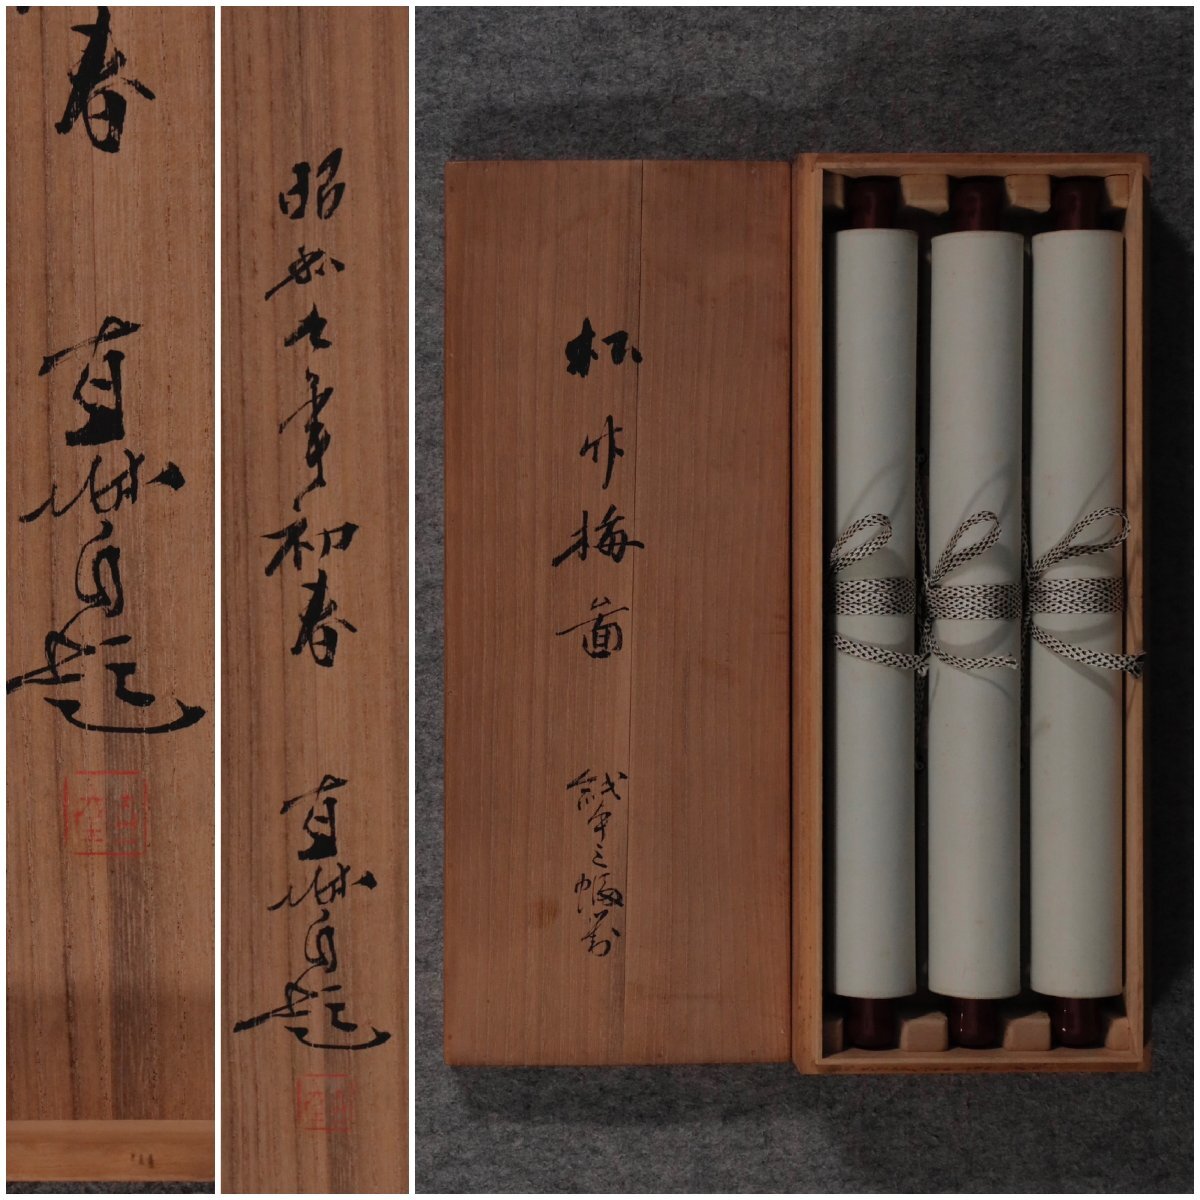 春
直城自題
昭和九年初春
直城自題
松竹梅図
紙本三幅対